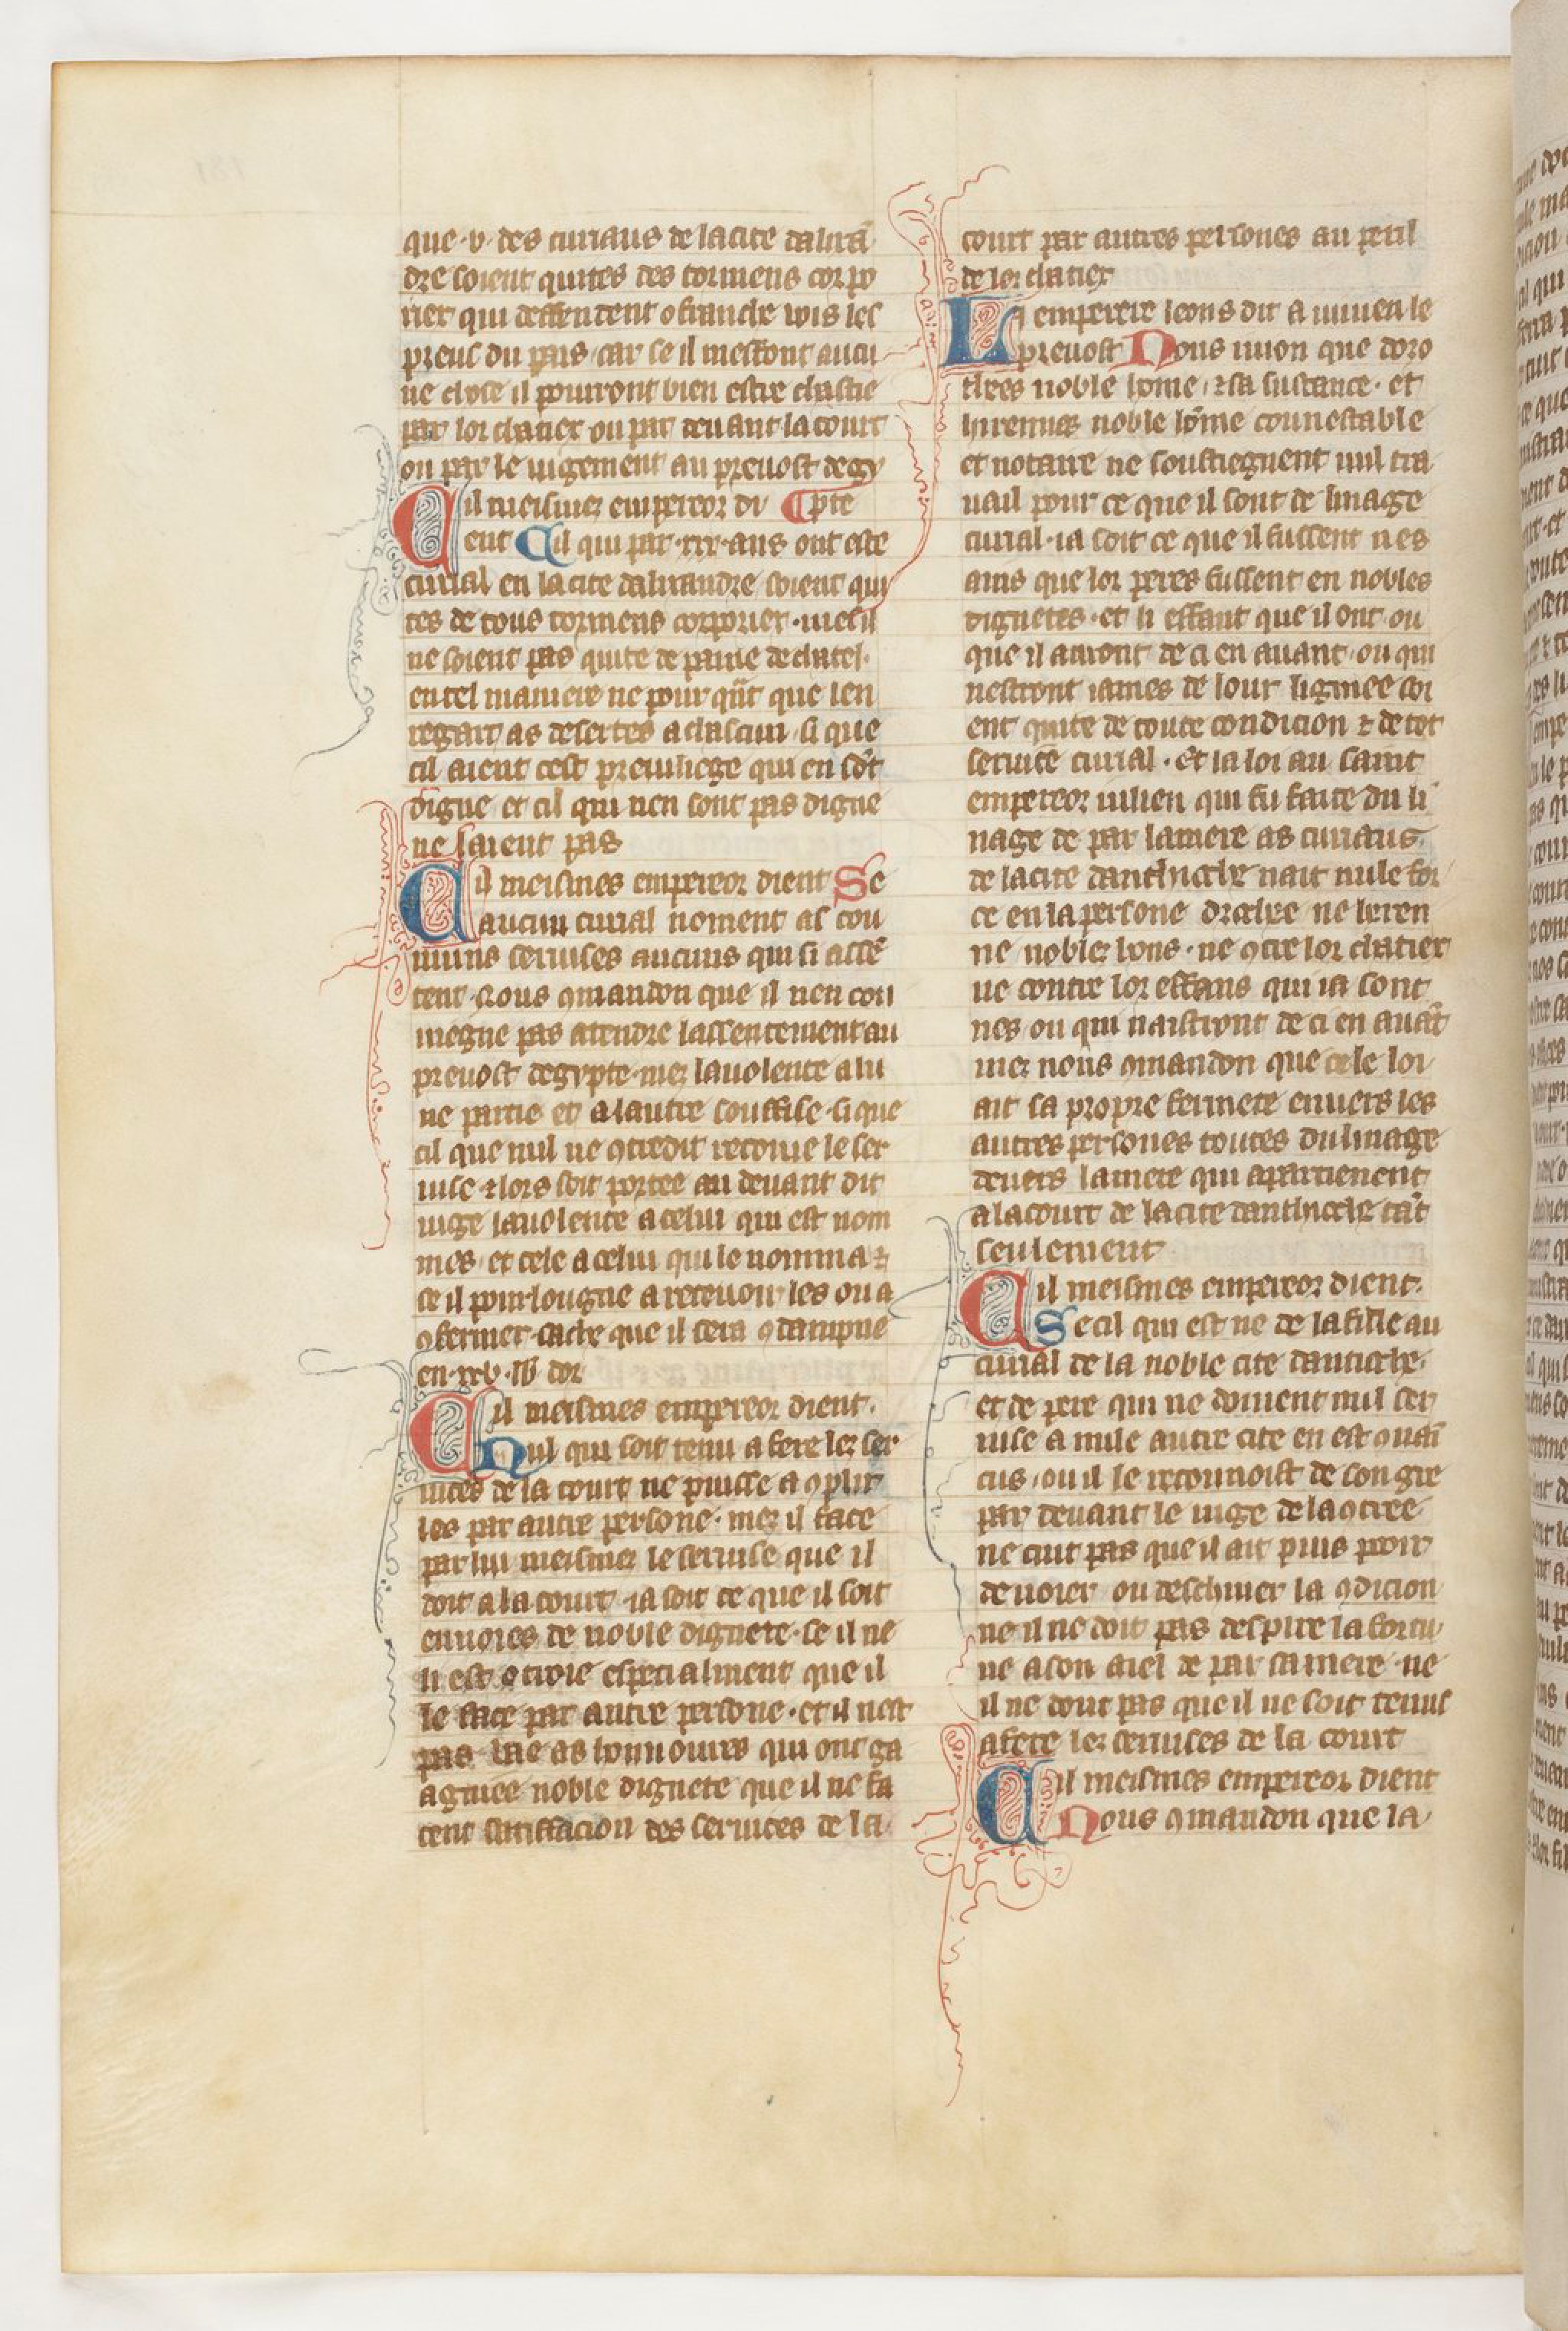 que .v. des curiaus de la cite dalixā
dre soient quites des tormens corpo
riex qui deffendent o franche vois les
preus du pais car se il meffont aucu
ne chose il pourront bien estre chastie
par lor chatiex ou par deuant la court
ou par le iugement au preuost degy
Cil meismes empereor di ¶ pte
ent Cil qui par .xxx. ans ont este
curial en la cite dalixandre soient qui
tes de tous tormens corporiex . mes il
ne soient pas quite de paine de chatel .
en tel maniere ne pour qñt que len
regart as desertes a chascun si que
cil aient cest preuiliege qui en sōt
digne et cil qui nen sont pas digne
ne laient pas
Cil meismes empereor dient Se
aucun curial noment as cou
muns seruises aucuns qui si assē
tent . Nous 9mandon que il nen cou
uiegne pas atendre lassentement au
preuost degypte . mes la uolente a lu
ne partie et a lautre souffise . si que
cil que nul ne 9tredit recoiue le ser
uise . ⁊ lors soit portee au deuant dit
iuge la uolente a celui qui est nom
mes . et cele a celui qui le nomma . ⁊
se il pourlougne a receuoir les ou a
9fermer sache que il sera 9dampne
en .xxv. lb dor
Cil meismes empereor dient .
Nul qui soit tenu a fere les ser
uices de la court ne puisse a9plir
les par autre persone . mes il face
par lui meismes le seruise que il
doit a la court . ia soit ce que il soit
ennoies de noble dignete . se il ne
li est otroie especialment que il
le face par autre persone . et il nest
pas laie as honnoures qui ont ga
agniee noble dignete que il ne fa
cent satiffacion des seruices de la
court par autres persones au peril
de lor chatiex
Li emperere leons dit a uiuien le
preuost Nous uuion que doro
thees noble home . ⁊ sa sustance . et
hirennies noble hōme connestable
et notaire ne soustiegnent nul tra
uail pour ce que il sont de linage
curial . ia soit ce que il fussent nes
ains que lor peres fussent en nobles
dignetes . et li effant que il ont ou
que il auront de ci en auant . ou qui
nestront iames de lour ligniee soi
ent quite de toute condicion ⁊ de tot
seruice curial . Et la loi au saint
empereor iulien qui fu faite du li
nage de par la mere as curiaus
de la cite danthioche nait nule for
ce en la persone dorothee ne heren
ne nobles hons . ne 9tre lor chatiex
ne contre lor effans qui ia sont
nes ou qui naistront de ci en auāt
mes nous 9mandon que cele loi
ait sa propre fermete enuers les
autres persones toutes du linage
deuers la mere qui apartienent
a la court de la cite danthioche tāt
seulement
Cil meismes empereor dient .
Se cil qui est ne de la fille au
curial de la noble cite dantioche .
et de pere qui ne doiuent nul ser
uise a nule autre cite en est 9uaī
cus . ou il le reconnoist de son gre
par deuant le iuge de la 9tree
ne cuit pas que il ait puis pooir
de uoier ou deschiuer la 9dicion
ne il ne doit pas despire la fortu
ne a son aiel de par sa mere . ne
il ne dout pas que il ne soit tenus
a fere les seruises de la court
Cil meismes empereor dient
Nous 9mandon que la